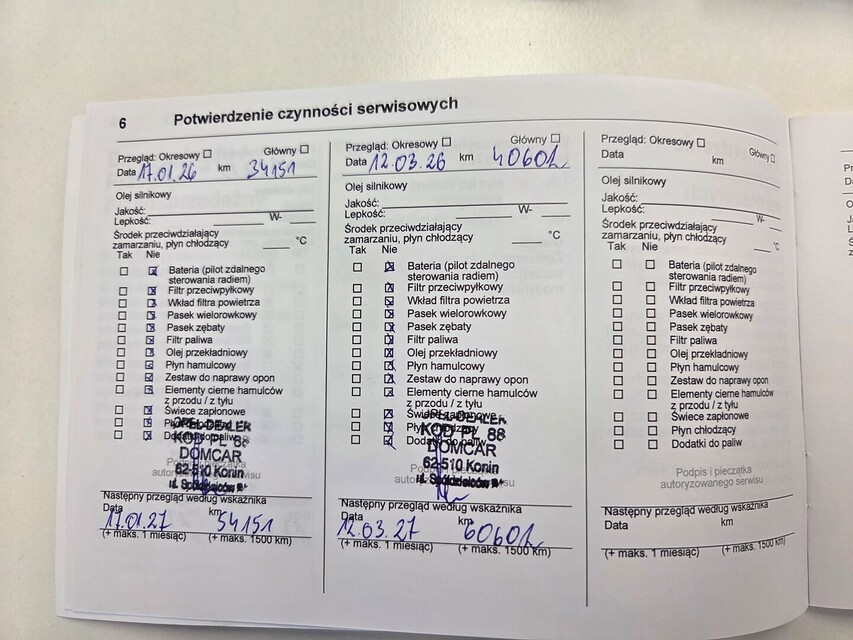 6 Potwierdzenie czynności serwisowych
Przegląd: Okresowy ☐ Główny ☐
Data 17.01.26 km 34151
Olej silnikowy
Jakość:
Lepkość: W-
Środek przeciwdziałający
zamarzaniu, płyn chłodzący °C
Tak Nie
Bateria (pilot zdalnego
sterowania radiem)
Filtr przeciwpyłkowy
Wkład filtra powietrza
Pasek wielorowkowy
Pasek zębaty
Filtr paliwa
Olej przekładniowy
Płyn hamulcowy
Zestaw do naprawy opon
Elementy cierne hamulców
z przodu / z tyłu
Świece zapłonowe
Płyn chłodzący
Dodatki do paliw
OPEL DEALER
KOD PL 88
DOMCAR
62-510 Konin
ul. Spółdzielców
Podpis i pieczątka
autoryzowanego serwisu
Następny przegląd według wskaźnika
Data 17.01.27 km 54151
(+ maks. 1 miesiąc) (+ maks. 1500 km)
Przegląd: Okresowy ☐ Główny ☐
Data 12.03.26 km 40602
Olej silnikowy
Jakość:
Lepkość: W-
Środek przeciwdziałający
zamarzaniu, płyn chłodzący °C
Tak Nie
Bateria (pilot zdalnego
sterowania radiem)
Filtr przeciwpyłkowy
Wkład filtra powietrza
Pasek wielorowkowy
Pasek zębaty
Filtr paliwa
Olej przekładniowy
Płyn hamulcowy
Zestaw do naprawy opon
Elementy cierne hamulców
z przodu / z tyłu
Świece zapłonowe
Płyn chłodzący
Dodatki do paliw
OPEL DEALER
KOD PL 88
DOMCAR
62-510 Konin
ul. Spółdzielców
Następny przegląd według wskaźnika
Data 12.03.27 km 60602
(+ maks. 1 miesiąc) (+ maks. 1500 km)
Przegląd: Okresowy ☐ Główny ☐
Data km
Olej silnikowy
Jakość:
Lepkość: W-
Środek przeciwdziałający
zamarzaniu, płyn chłodzący °C
Tak Nie
Bateria (pilot zdalnego
sterowania radiem)
Filtr przeciwpyłkowy
Wkład filtra powietrza
Pasek wielorowkowy
Pasek zębaty
Filtr paliwa
Olej przekładniowy
Płyn hamulcowy
Zestaw do naprawy opon
Elementy cierne hamulców
z przodu / z tyłu
Świece zapłonowe
Płyn chłodzący
Dodatki do paliw
Podpis i pieczątka
autoryzowanego serwisu
Następny przegląd według wskaźnika
Data km
(+ maks. 1 miesiąc) (+ maks. 1500 km)